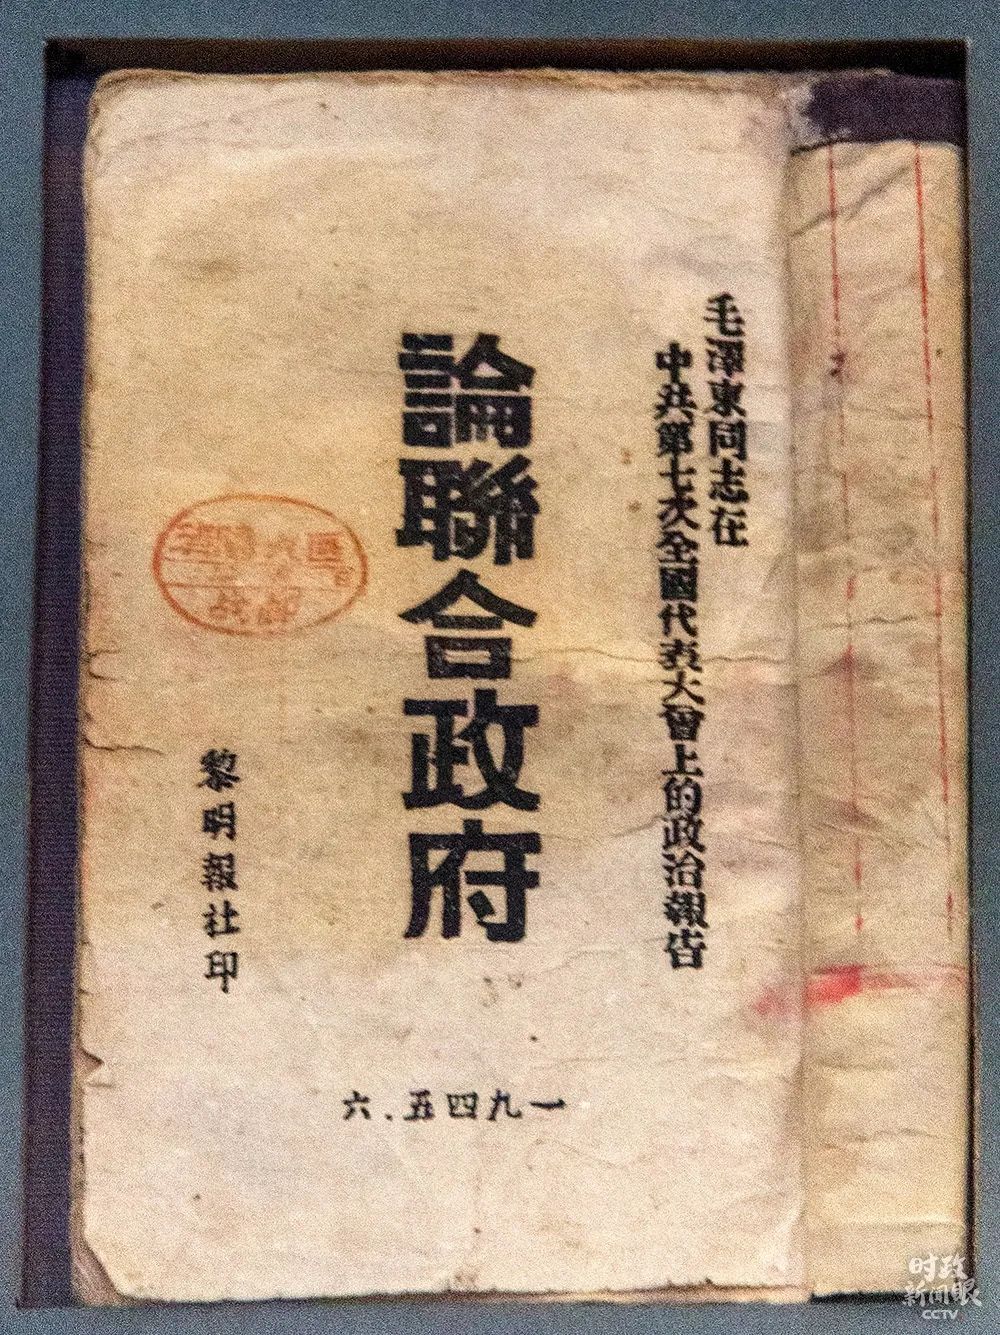 毛澤東同志在
中共第七次全國代表大會上的政治報告
論聯合政府
黎明報社印
一九四五.六
时政
新闻眼
CCTV